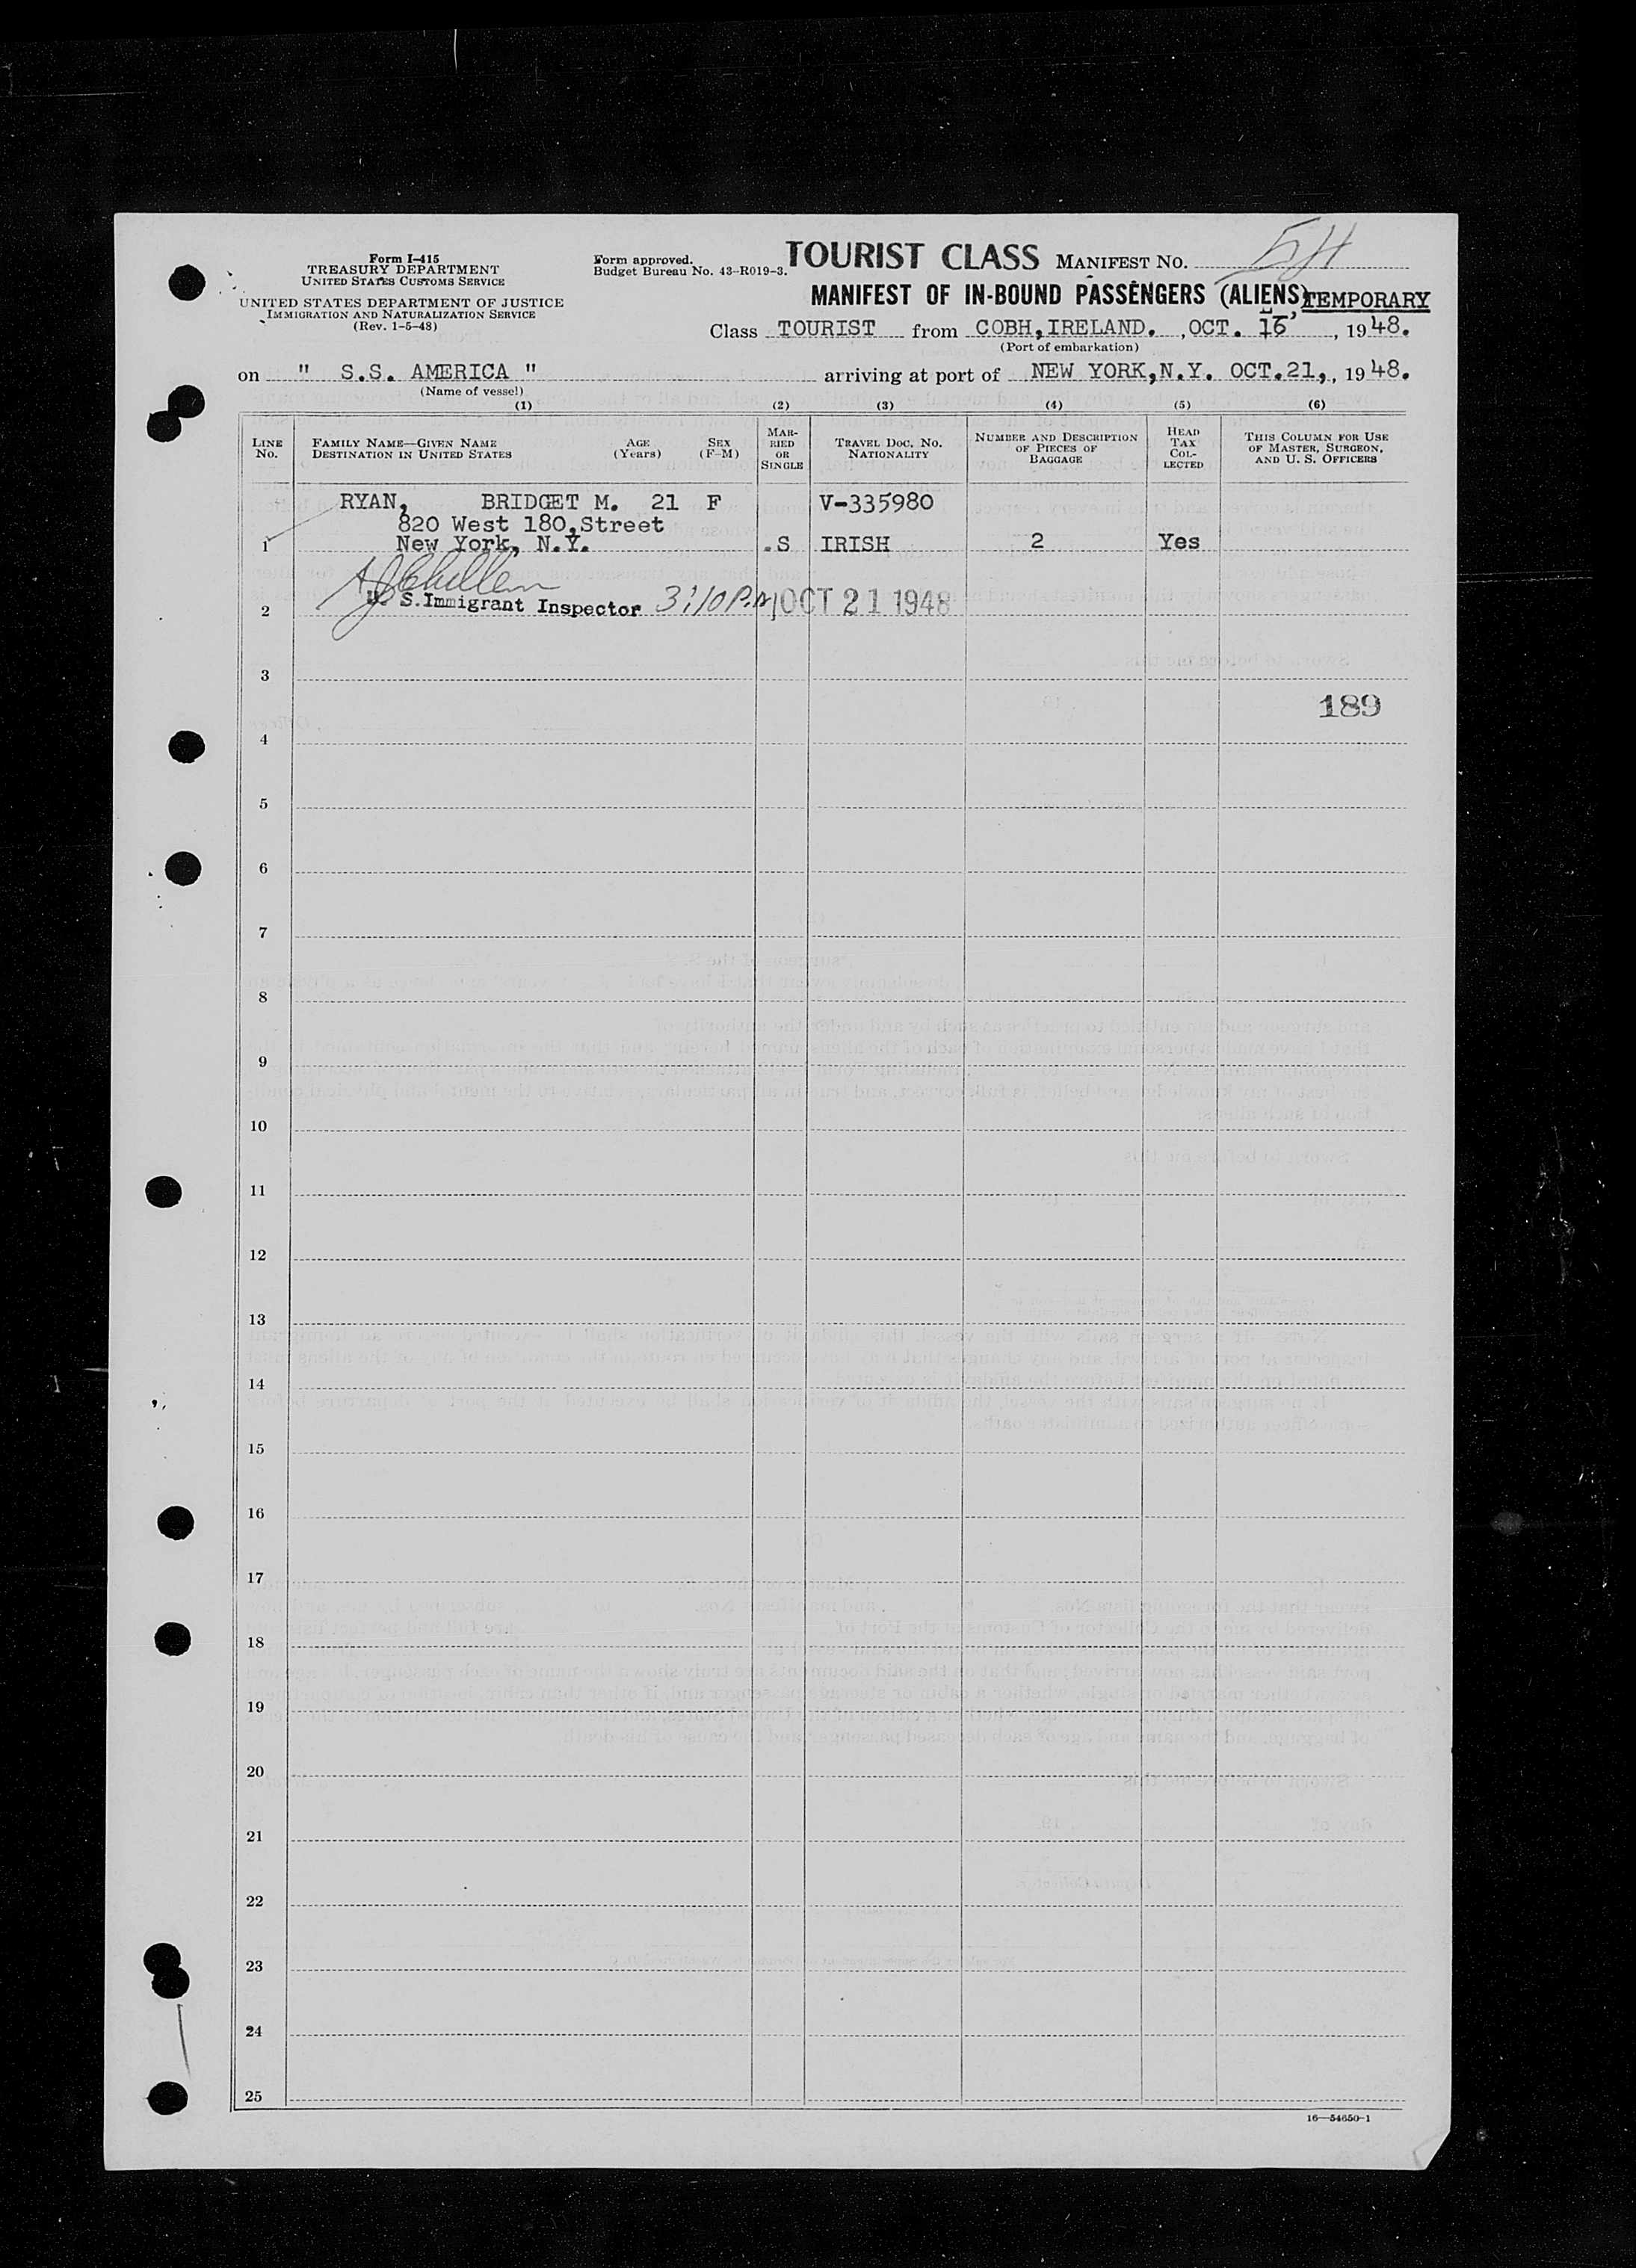 Form I-415
TREASURY DEPARTMENT
UNITED STATES CUSTOMS SERVICE
UNITED STATES DEPARTMENT OF JUSTICE
IMMIGRATION AND NATURALIZATION SERVICE
(Rev. 1-5-48)
Form approved.
Budget Bureau No. 43-R019-3.
TOURIST CLASS MANIFEST NO.
MANIFEST OF IN-BOUND PASSENGERS (ALIENS) TEMPORARY
Class TOURIST from COBH, IRELAND. , OCT. , 1948.
(Port of embarkation)
on " S.S. AMERICA " arriving at port of NEW YORK, N.Y. OCT. 21, , 1948.
(Name of vessel)
(1) (2) (3) (4) (5) (6)
LINE No. FAMILY NAME—GIVEN NAME DESTINATION IN UNITED STATES AGE (Years) SEX (F-M) MARRIED OR SINGLE TRAVEL DOC. NO. NATIONALITY NUMBER AND DESCRIPTION OF PIECES OF BAGGAGE HEAD TAX COLLECTED THIS COLUMN FOR USE OF MASTER, SURGEON, AND U. S. OFFICERS
RYAN, BRIDGET M. 21 F V-335980
820 West 180, Street
1 New York, N.Y. S IRISH 2 Yes
2 U. S. Immigrant Inspector 3:10 P.M OCT 21 1948
3
189
4
5
6
7
8
9
10
11
12
13
14
15
16
17
18
19
20
21
22
23
24
25
16—54650-1